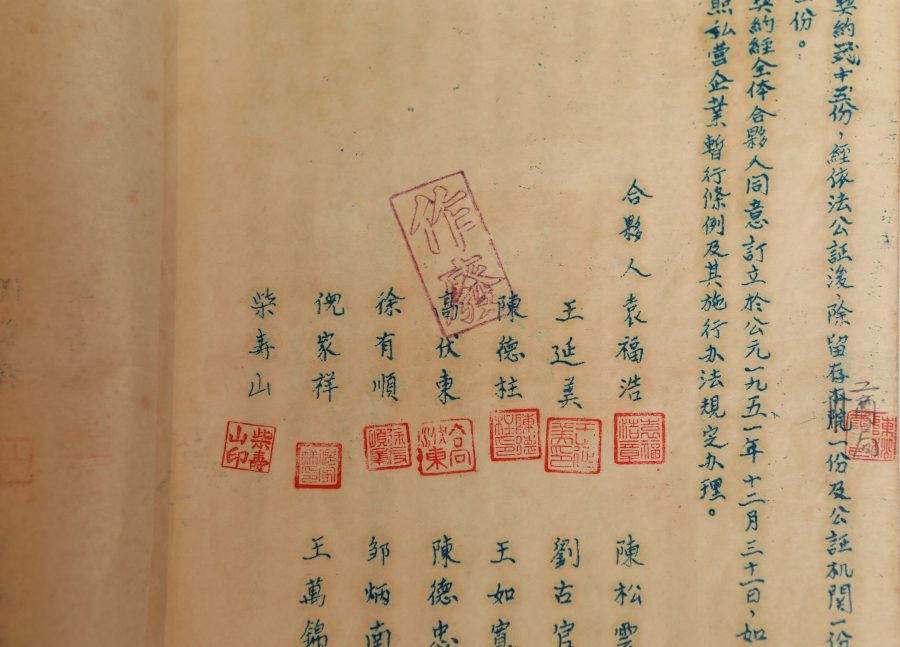 契約弍十五份，經依法公証後，除留存一份及公証机關一份
份。
契約經全体合夥人同意訂立於公元一九五一年十二月三十一日，如
照私营企業暫行條例及其施行办法規定办理。
合夥人袁福浩
王延美
陳德柱
伏東
徐有順
倪家祥
柴寿山
作廢
柴壽山印
陳松雲
劉古官
王如
陳德忠
邹炳南
王萬錦